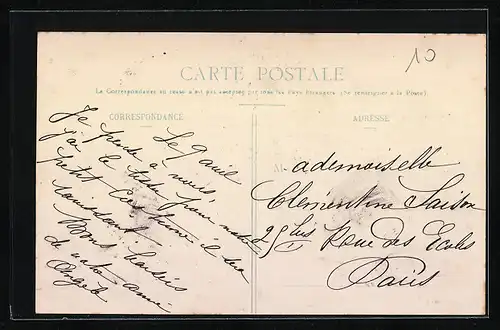 10
CARTE POSTALE
La Correspondance au recto n'est pas acceptée par tous les Pays Etrangers (Se renseigner à la Poste).
CORRESPONDANCE
ADRESSE
Le 9 avril
Je pense à vous,
j'ai le tissu pour notre
petit costume il sera
ravissant
Bons baisers
de votre amie
Angèle
Mademoiselle
Clémentine Saison
25 bis Rue des Ecoles
Paris